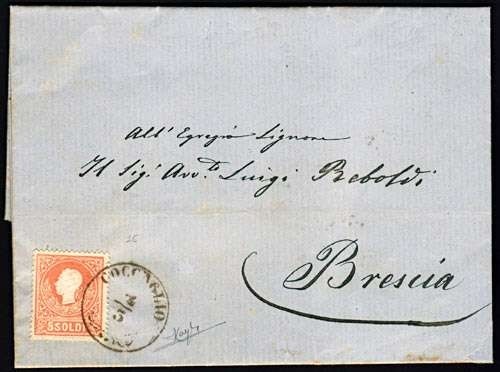 All' Egregio Signore
Il Sigr. Avv.to Luigi Reboldi
Brescia
COCCAGLIO
5 SOLDI